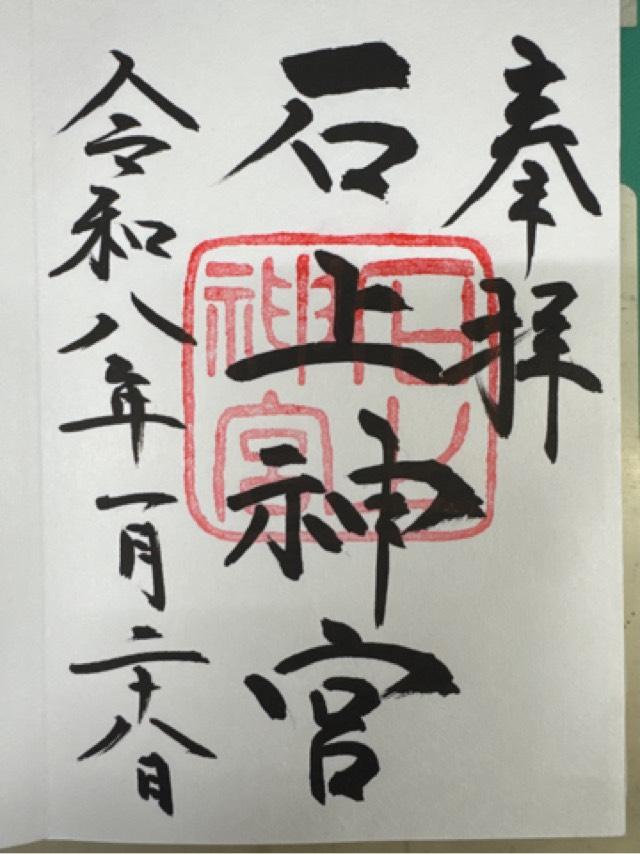 奉拝
石上神宮
令和八年一月二十八日
石上
神宮